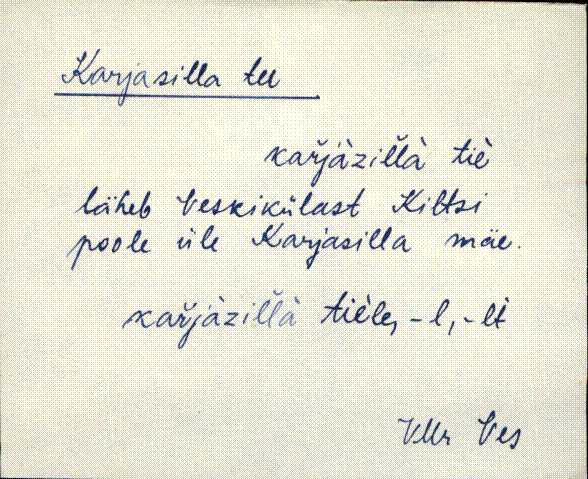 Karjasilla tee
kaŕjàzil̆l̆à tiè
läheb Veskikülast Kiltsi
poole üle Karjasilla mäe.
kaŕjàzil̆l̆à tièle, -l, -lt
VMr Ves